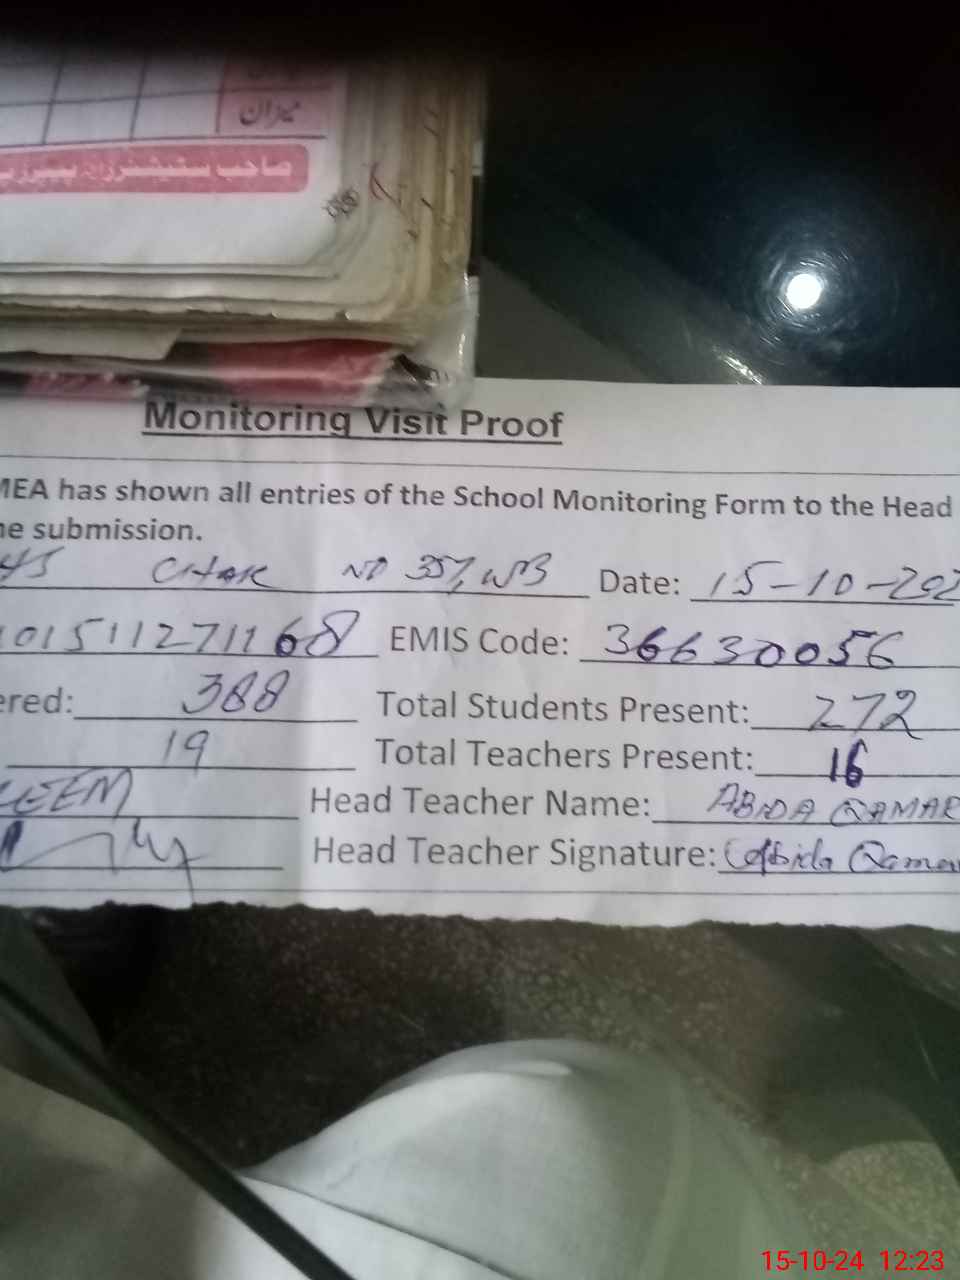 میزان
صاحب سٹیشنرز
Monitoring Visit Proof
MEA has shown all entries of the School Monitoring Form to the Head
submission.
CHAK NO 357/WB Date: 15-10-202
101511271168 EMIS Code: 36630056
ered: 388 Total Students Present: 272
19 Total Teachers Present: 16
EEM Head Teacher Name: ABIDA QAMAR
Head Teacher Signature: Abida Qamar
15-10-24 12:23